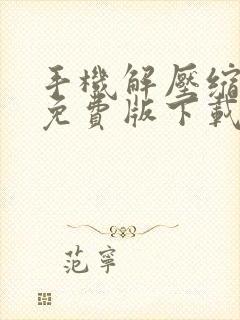 手機解壓縮
免費版下載
范寧